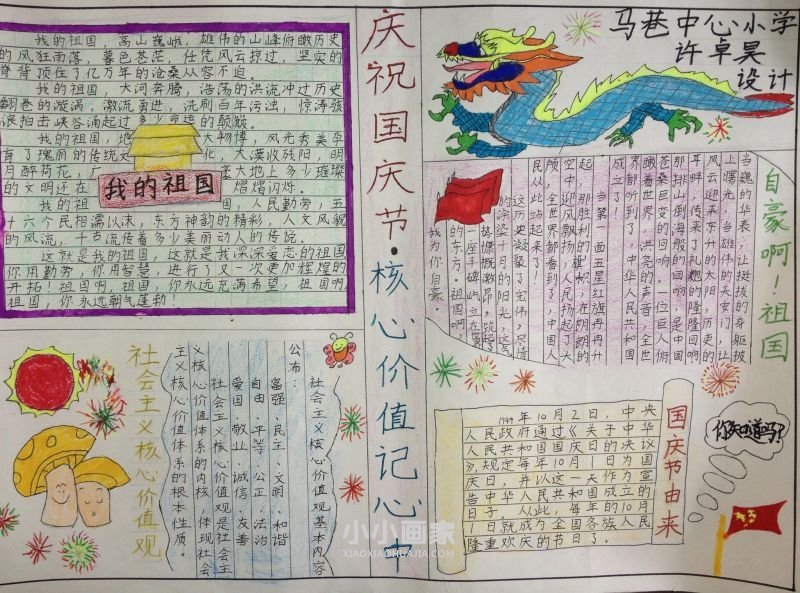 我的祖国，高山巍峨，雄伟的山峰俯瞰历史
的风狂雨落，暮色苍茫，任凭风云掠过，坚实的
脊背顶住了亿万年的沧桑从容不迫。
我的祖国 大河奔腾，浩荡的洪流冲过历史
翻卷的漩涡，激流勇进，洗刷百年污浊，惊涛骇
浪拍击峡谷涌起过多少命运的颠簸。
我的祖国，地 大物博，风光秀美孕
育了瑰丽的传统文 化，大漠收残阳，明
月醉荷花，广 大地上多少璀璨
的文明还在 熠熠闪烁。
我的祖 国，人民勤劳，五
十六个民相濡以沫，东方神韵的精彩，人文风貌
的风流，千古流传着多少美丽动人的传说。
这就是我的祖国，这就是我深深爱恋的祖国
你用勤劳，你用智慧，进行了又一次更加辉煌的
开拓！祖国啊，祖国，你永远充满希望，祖国啊，
祖国，你永远朝气蓬勃！
我的祖国
庆祝国庆节·核心价值记心中
马巷中心小学
许卓昊
设计
自豪啊！祖国
当巍的华表，让挺拔的身躯披
上曙光，当雄伟的天安门，让
风云迎来东升的太阳，历史的
耳畔，传来了礼炮的隆隆回响，
那排山倒海般的回响，是中国
苍桑巨变的回响。一位巨人俯
瞰着世界，洪亮的声音，全世
界都听到了，中华人民共和国
成立了！
当第一面五星红旗冉冉升
起，那胜利的旗帜，在朗朗的
空中迎风飘扬，人民扬起了大
颅，全世界都看到了，中国人
民从此站起来了！
这历史凝聚了宏伟，尽情
的涂染十月的阳光，这
气势慷慨激昂，筑起
一座丰碑屹立在
的东方。祖国啊
我为你自豪。
社会主义核心价值观
社会主义核心价值观基本内容
公布：
富强、民主、文明、和谐
自由、平等、公正、法治
爱国、敬业、诚信、友善
社会主义核心价值观是社会主
义核心价值体系的内核，体现社会
主义核心价值体系的根本性质。
国庆节由来
1949年10月2日，中央
人民政府通过《关于中华
人民共和国国庆日的决议
》，规定每年10月1日为国
庆日，并以这一天作为宣
告中华人民共和国成立的
日子。从此，每年的10月
1日就成为全国各族人民
隆重欢庆的节日了。
你知道吗？
小小画家
XIAOXIAOHUAJIA.COM